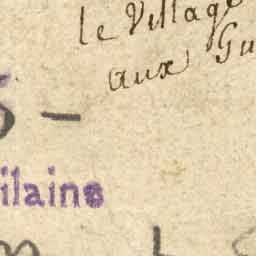 le Village
aux Gu
5 -
ilaine